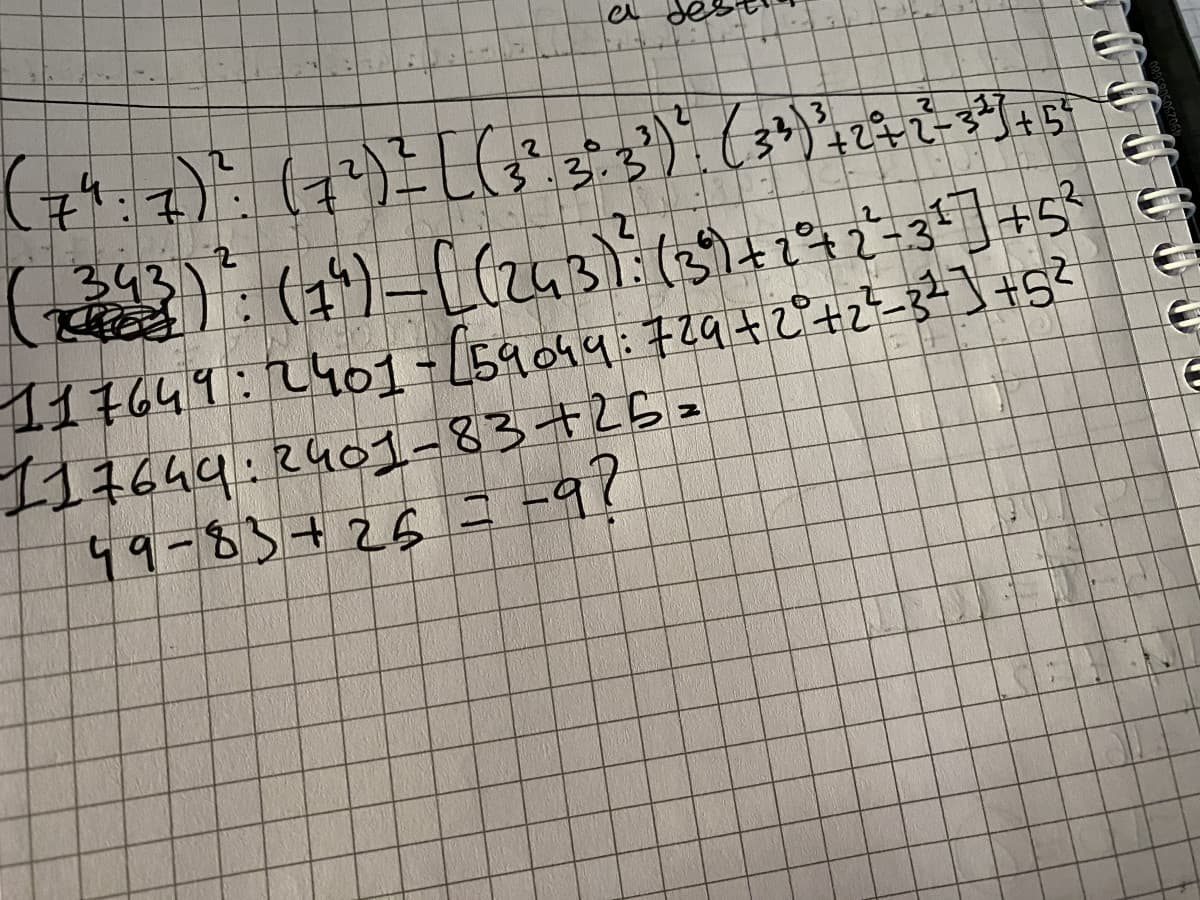 a dest
(7⁴:7)²:(7²)²-[(3²·3⁰·3³)²:(3³)³+2⁰+2²-3¹]+5²
(343)²:(7⁴)-[(243)²:(3⁶)+2⁰+2²-3¹]+5²
117649:2401-[59049:729+2⁰+2²-3¹]+5²
117649:2401-83+25=
49-83+25=-9?